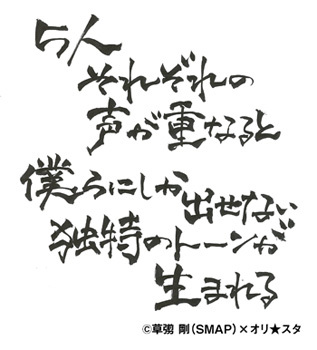 5人
それぞれの
声が重なると
僕らにしか出せない
独特のトーンが
生まれる
©草彅 剛(SMAP)×オリ★スタ